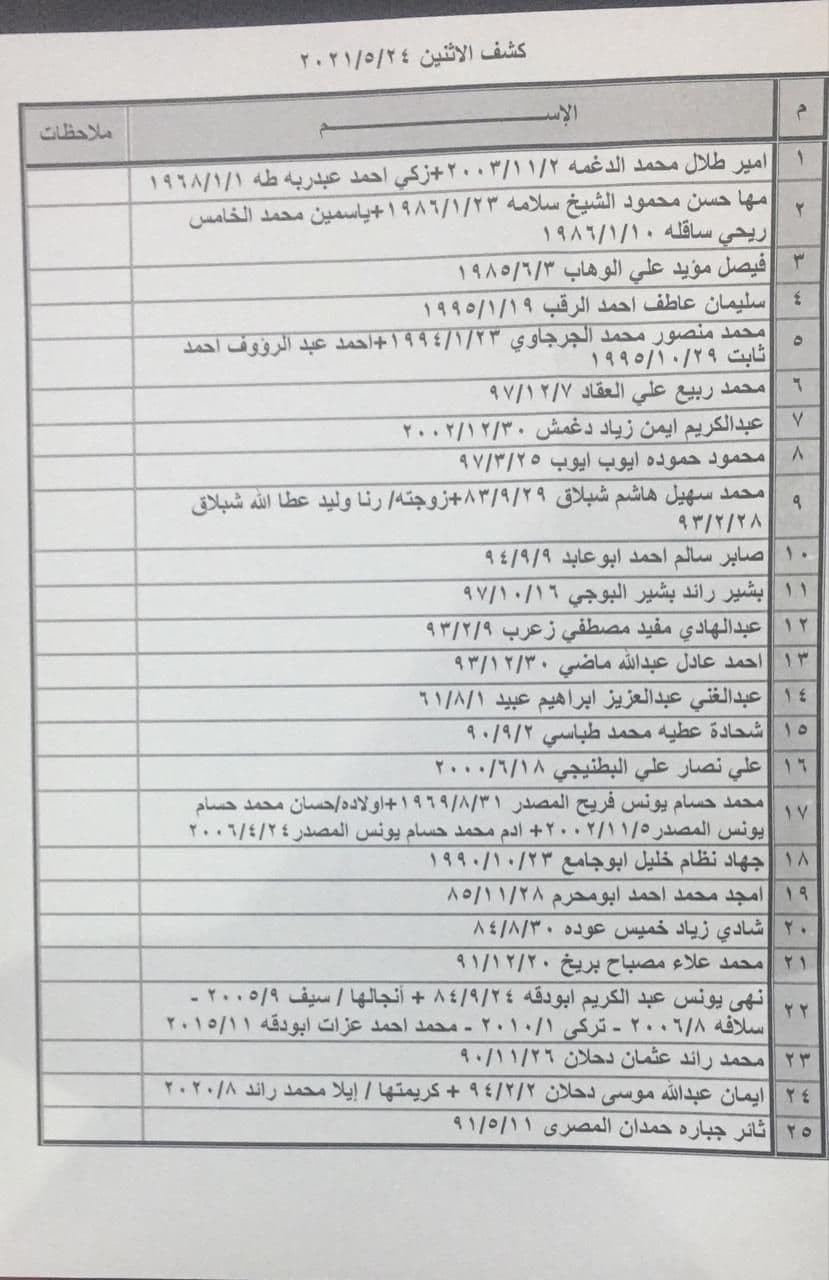 كشف الاثنين ٢٠٢١/٥/٢٤
م الإســـــــــم ملاحظات
١ امير طلال محمد الدغمه ٢٠٠٣/١١/٢+زكي احمد عبدربه طه ١٩٦٨/١/١
٢ مها حسن محمود الشيخ سلامه ١٩٨٦/١/٢٣+ياسمين محمد الخامس
ريحي ساقله ١٩٨٦/١/١٠
٣ فيصل مؤيد علي الوهاب ١٩٨٥/٦/٣
٤ سليمان عاطف احمد الرقب ١٩٩٥/١/١٩
٥ محمد منصور محمد الجرجاوي ١٩٩٤/١/٢٣+احمد عبد الرؤوف احمد
ثابت ١٩٩٥/١٠/٢٩
٦ محمد ربيع علي العقاد ٩٧/١٢/٧
٧ عبدالكريم ايمن زياد دغمش ٢٠٠٢/١٢/٣٠
٨ محمود حموده ايوب ايوب ٩٧/٣/٢٥
٩ محمد سهيل هاشم شبلاق ٨٣/٩/٢٩+زوجته/ رنا وليد عطا الله شبلاق
٩٣/٢/٢٨
١٠ صابر سالم احمد ابو عابد ٩٤/٩/٩
١١ بشير رائد بشير البوجي ٩٧/١٠/١٦
١٢ عبدالهادي مفيد مصطفي زعرب ٩٣/٢/٩
١٣ احمد عادل عبدالله ماضي ٩٣/١٢/٣٠
١٤ عبدالغني عبدالعزيز ابراهيم عبيد ٦١/٨/١
١٥ شحادة عطيه محمد طباسي ٩٠/٩/٢
١٦ علي نصار علي البطنيجي ٢٠٠٠/٦/١٨
١٧ محمد حسام يونس فريح المصدر ١٩٦٩/٨/٣١+اولاده/حسان محمد حسام
يونس المصدر٢٠٠٢/١١/٥+ ادم محمد حسام يونس المصدر٢٠٠٦/٤/٢٤
١٨ جهاد نظام خليل ابوجامع ١٩٩٠/١٠/٢٣
١٩ امجد محمد احمد ابومحرم ٨٥/١١/٢٨
٢٠ شادي زياد خميس عوده ٨٤/٨/٣٠
٢١ محمد علاء مصباح بريخ ٩١/١٢/٢٠
٢٢ نهى يونس عبد الكريم ابودقه ٨٤/٩/٢٤ + أنجالها / سيف ٢٠٠٥/٩ -
سلافه ٢٠٠٦/٨ - تركى ٢٠١٠/١ - محمد احمد عزات ابودقه ٢٠١٥/١١
٢٣ محمد رائد عثمان دحلان ٩٠/١١/٢٦
٢٤ ايمان عبدالله موسى دحلان ٩٤/٢/٢ + كريمتها / إيلا محمد رائد ٢٠٢٠/٨
٢٥ ثائر جباره حمدان المصرى ٩١/٥/١١